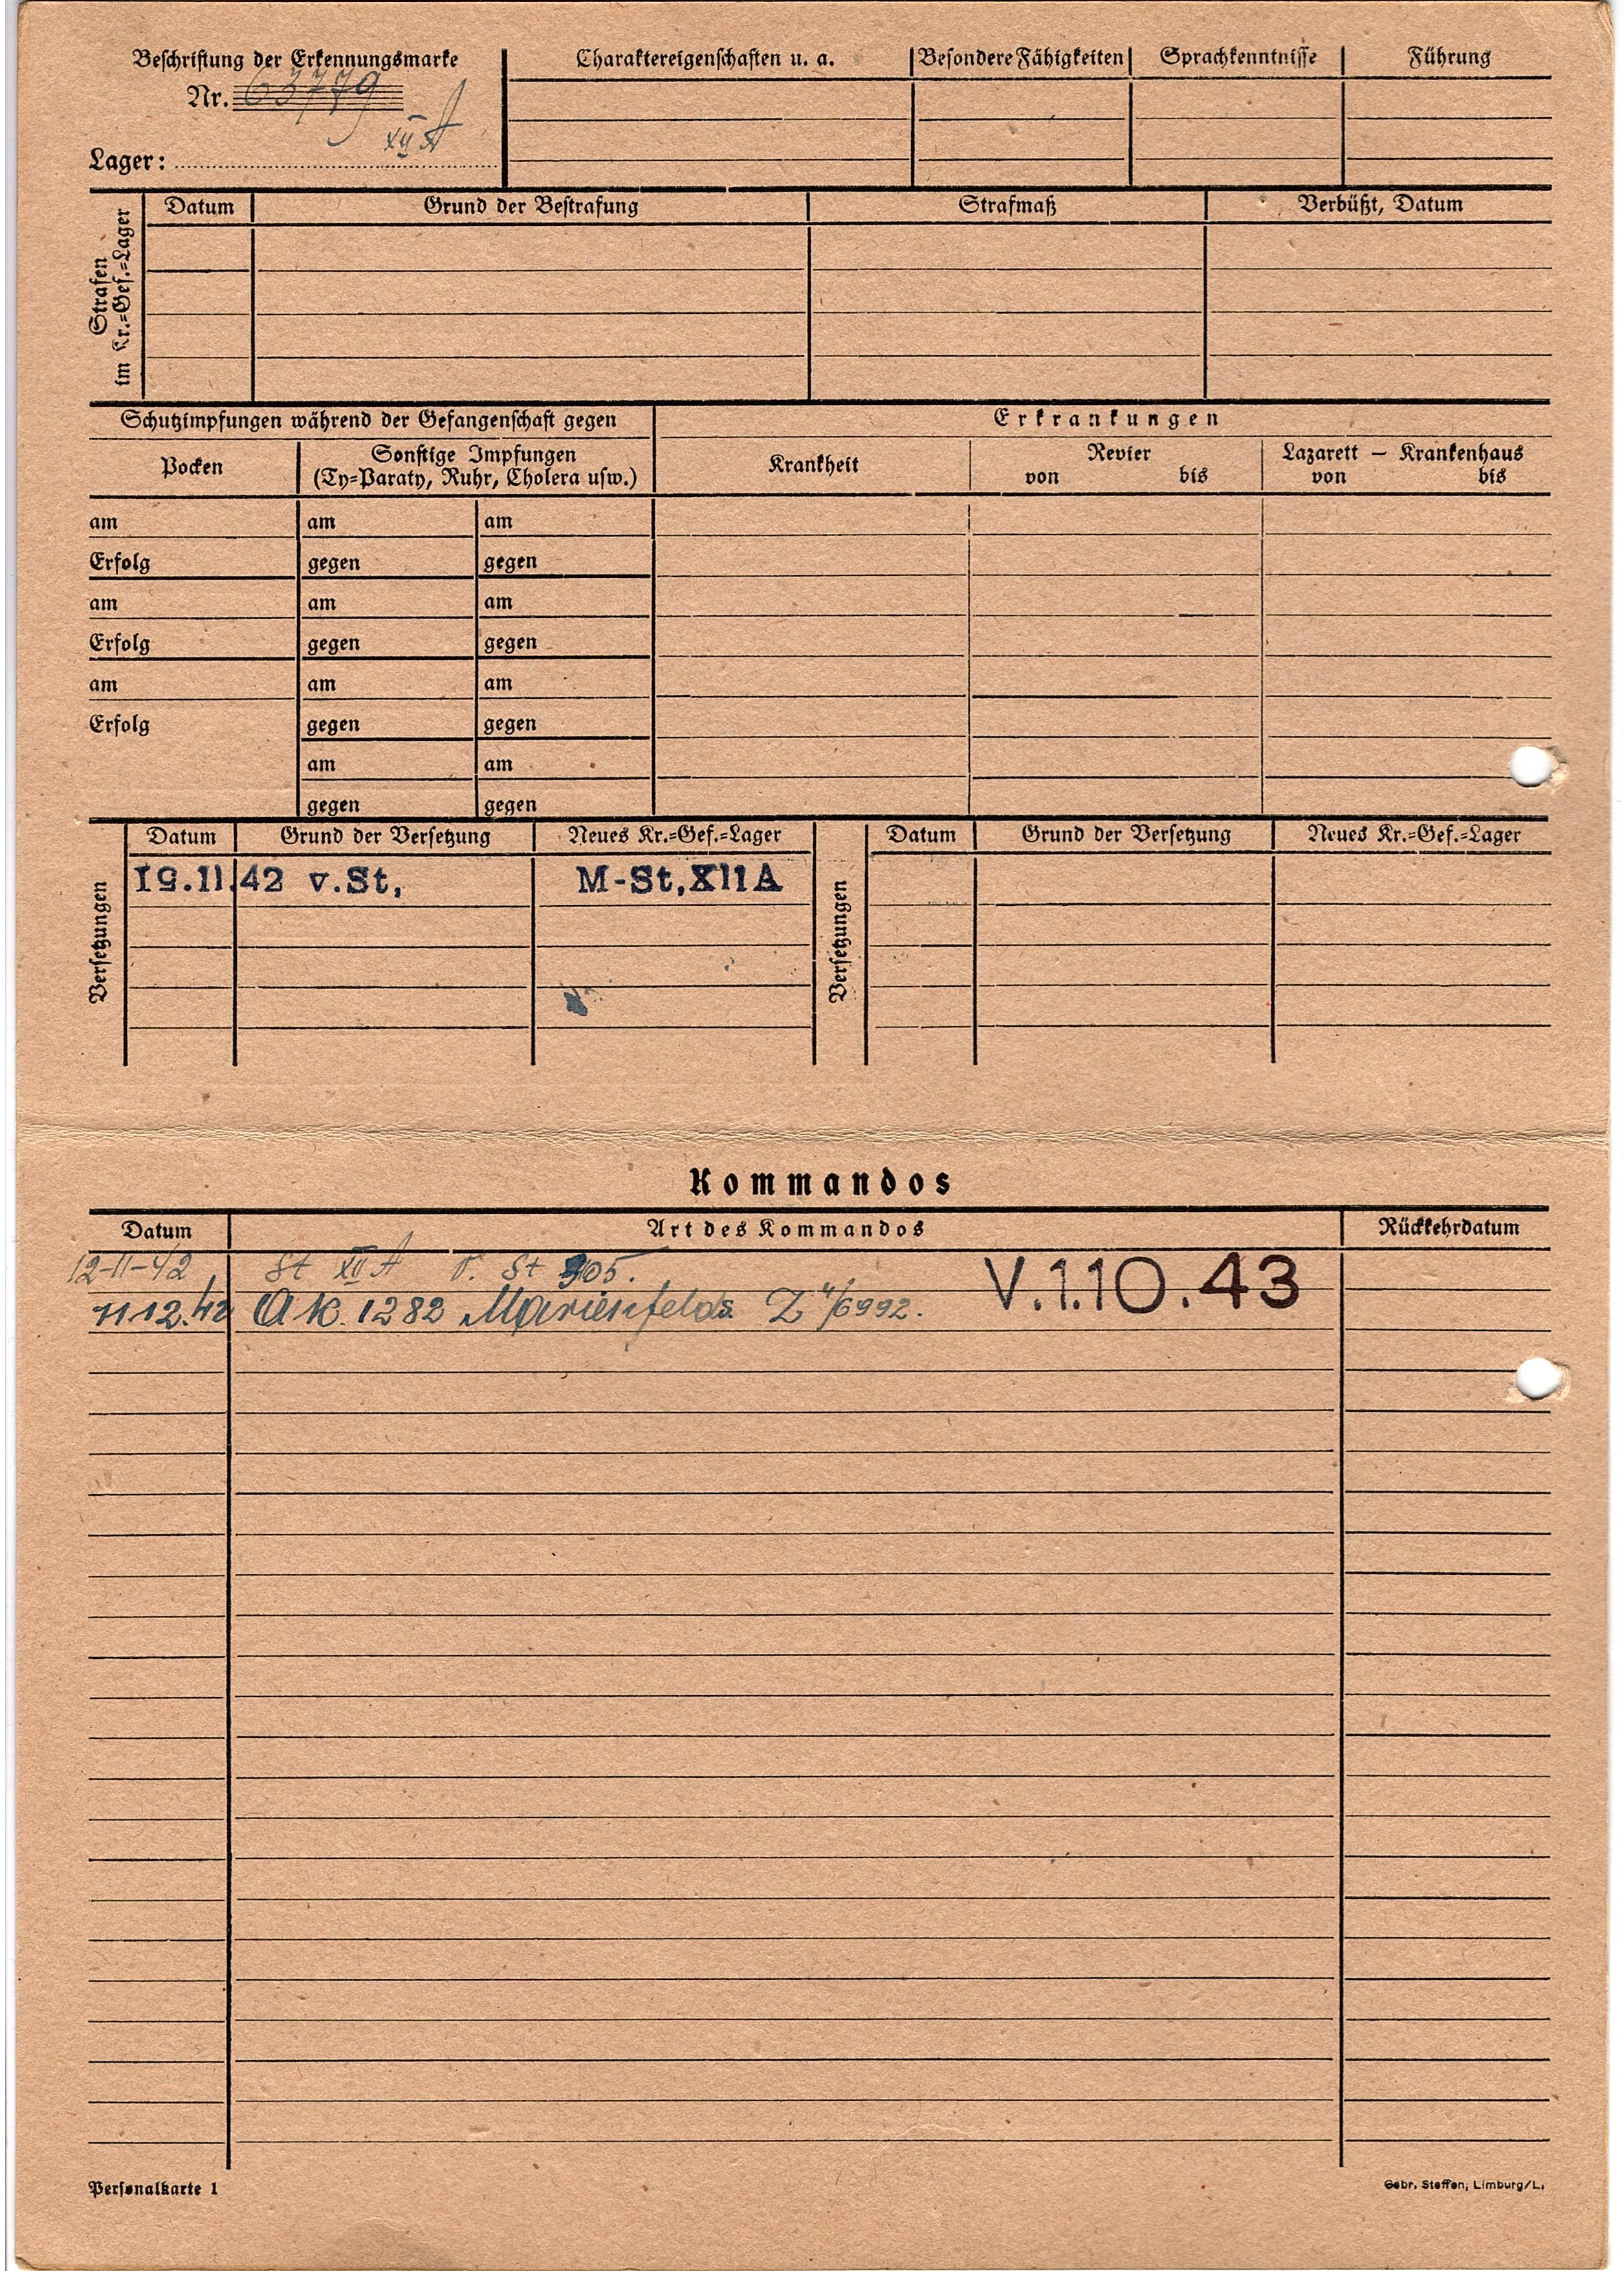 Beschriftung der Erkennungsmarke
Nr. 63779
XII A
Lager:
Charaktereigenschaften u. a. Besondere Fähigkeiten Sprachkenntnisse Führung
Strafen
im Kr.=Gef.=Lager
Datum Grund der Bestrafung Strafmaß Verbüßt, Datum
Schutzimpfungen während der Gefangenschaft gegen
Erkrankungen
Pocken
Sonstige Impfungen
(Ty=Paraty, Ruhr, Cholera usw.)
Krankheit
Revier
von bis
Lazarett — Krankenhaus
von bis
am am am
Erfolg gegen gegen
am am am
Erfolg gegen gegen
am am am
Erfolg gegen gegen
am am
gegen gegen
Versetzungen
Datum Grund der Versetzung Neues Kr.=Gef.=Lager
19.11.42 v.St, M-St,XIIA
Versetzungen
Datum Grund der Versetzung Neues Kr.=Gef.=Lager
Kommandos
Datum Art des Kommandos Rückkehrdatum
12-11-42 St XII A v. St 305.
V.1.10.43
11.12.42 AK. 1282 Marienfelds
Personalkarte 1
Gebr. Steffen; Limburg/L.